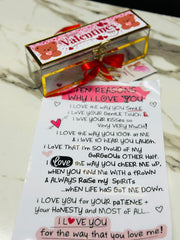 Valentine
TEN REASONS
WHY I LOVE YOU
I LOVE THE WAY YOU SMILE
I LOVE YOUR GENTLE TOUCH
I LOVE YOUR KISSES SO
VERY VERY MUCH!
I LOVE THE WAY YOU LOOK AT ME
I LOVE TO HEAR YOU LAUGH
I LOVE THAT I'M SO PROUD OF MY
GORGEOUS OTHER HALF.
I Love THE WAY YOU CHEER ME UP,
WHEN YOU FIND ME WITH A FROWN
& ALWAYS RAISE MY SPIRITS
...WHEN LIFE HAS GOT ME DOWN.
I LOVE YOU FOR YOUR PATIENCE &
YOUR HONESTY AND MOST OF ALL...
I LOVE YOU
for the way that you love me!